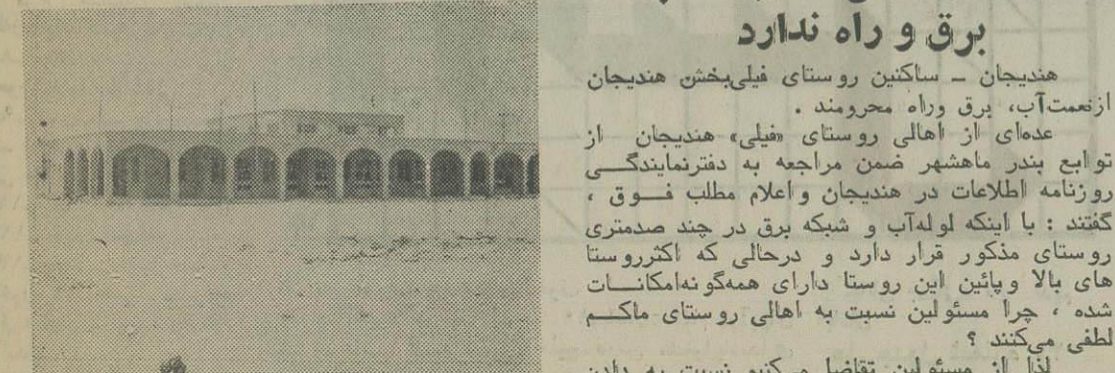 برق و راه ندارد
هندیجان ـ ساکنین روستای فیلی‌بخش هندیجان
ازنعمت‌آب، برق وراه محرومند .
عده‌ای از اهالی روستای «فیلی» هندیجان از
توابع بندر ماهشهر ضمن مراجعه به دفترنمایندگــی
روزنامه اطلاعات در هندیجان و اعلام مطلب فــوق ،
گفتند : با اینکه لوله‌آب و شبکه برق در چند صدمتری
روستای مذکور قرار دارد و درحالی که اکثرروستا
های بالا وپائین این روستا دارای همه‌گونه‌امکانــات
شده ، چرا مسئولین نسبت به اهالی روستای ماکــم
لطفی می‌کنند ؟
لذا از مسئولین تقاضا می‌کنیم نسبت به دادن